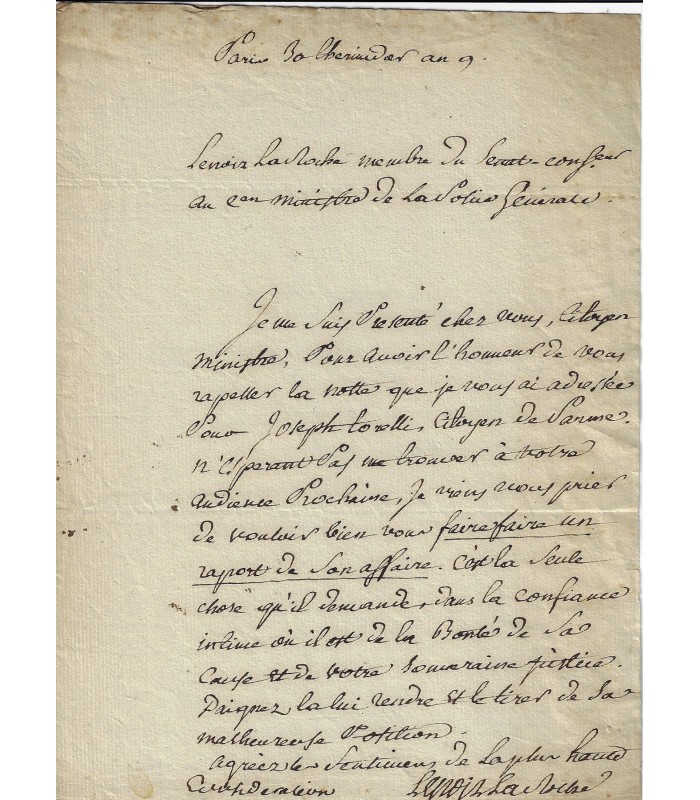 Paris 30 thermidor an 9.
Lenoir LaRoche membre du Senat-conser
au Cen ministre de La Police Générale.
Je me suis Presenté chez vous, Citoyen
ministre, Pour avoir l'honneur de vous
rapeller la notte que je vous ai adressée
Pour Joseph torelli, Citoyen de Parme.
n'esperant Pas me trouver à votre
audience Prochaine, Je viens vous prier
de vouloir bien vous faire faire un
raport de son affaire. C'est la seule
chose qu'il demande, dans la confiance
intime où il est de la Bonté de sa
Cause et de votre souveraine justice.
Daignez la lui rendre et le tirer de sa
malheureuse Position.
agréez les sentimens de la plus haute
Consideration Lenoir LaRoche